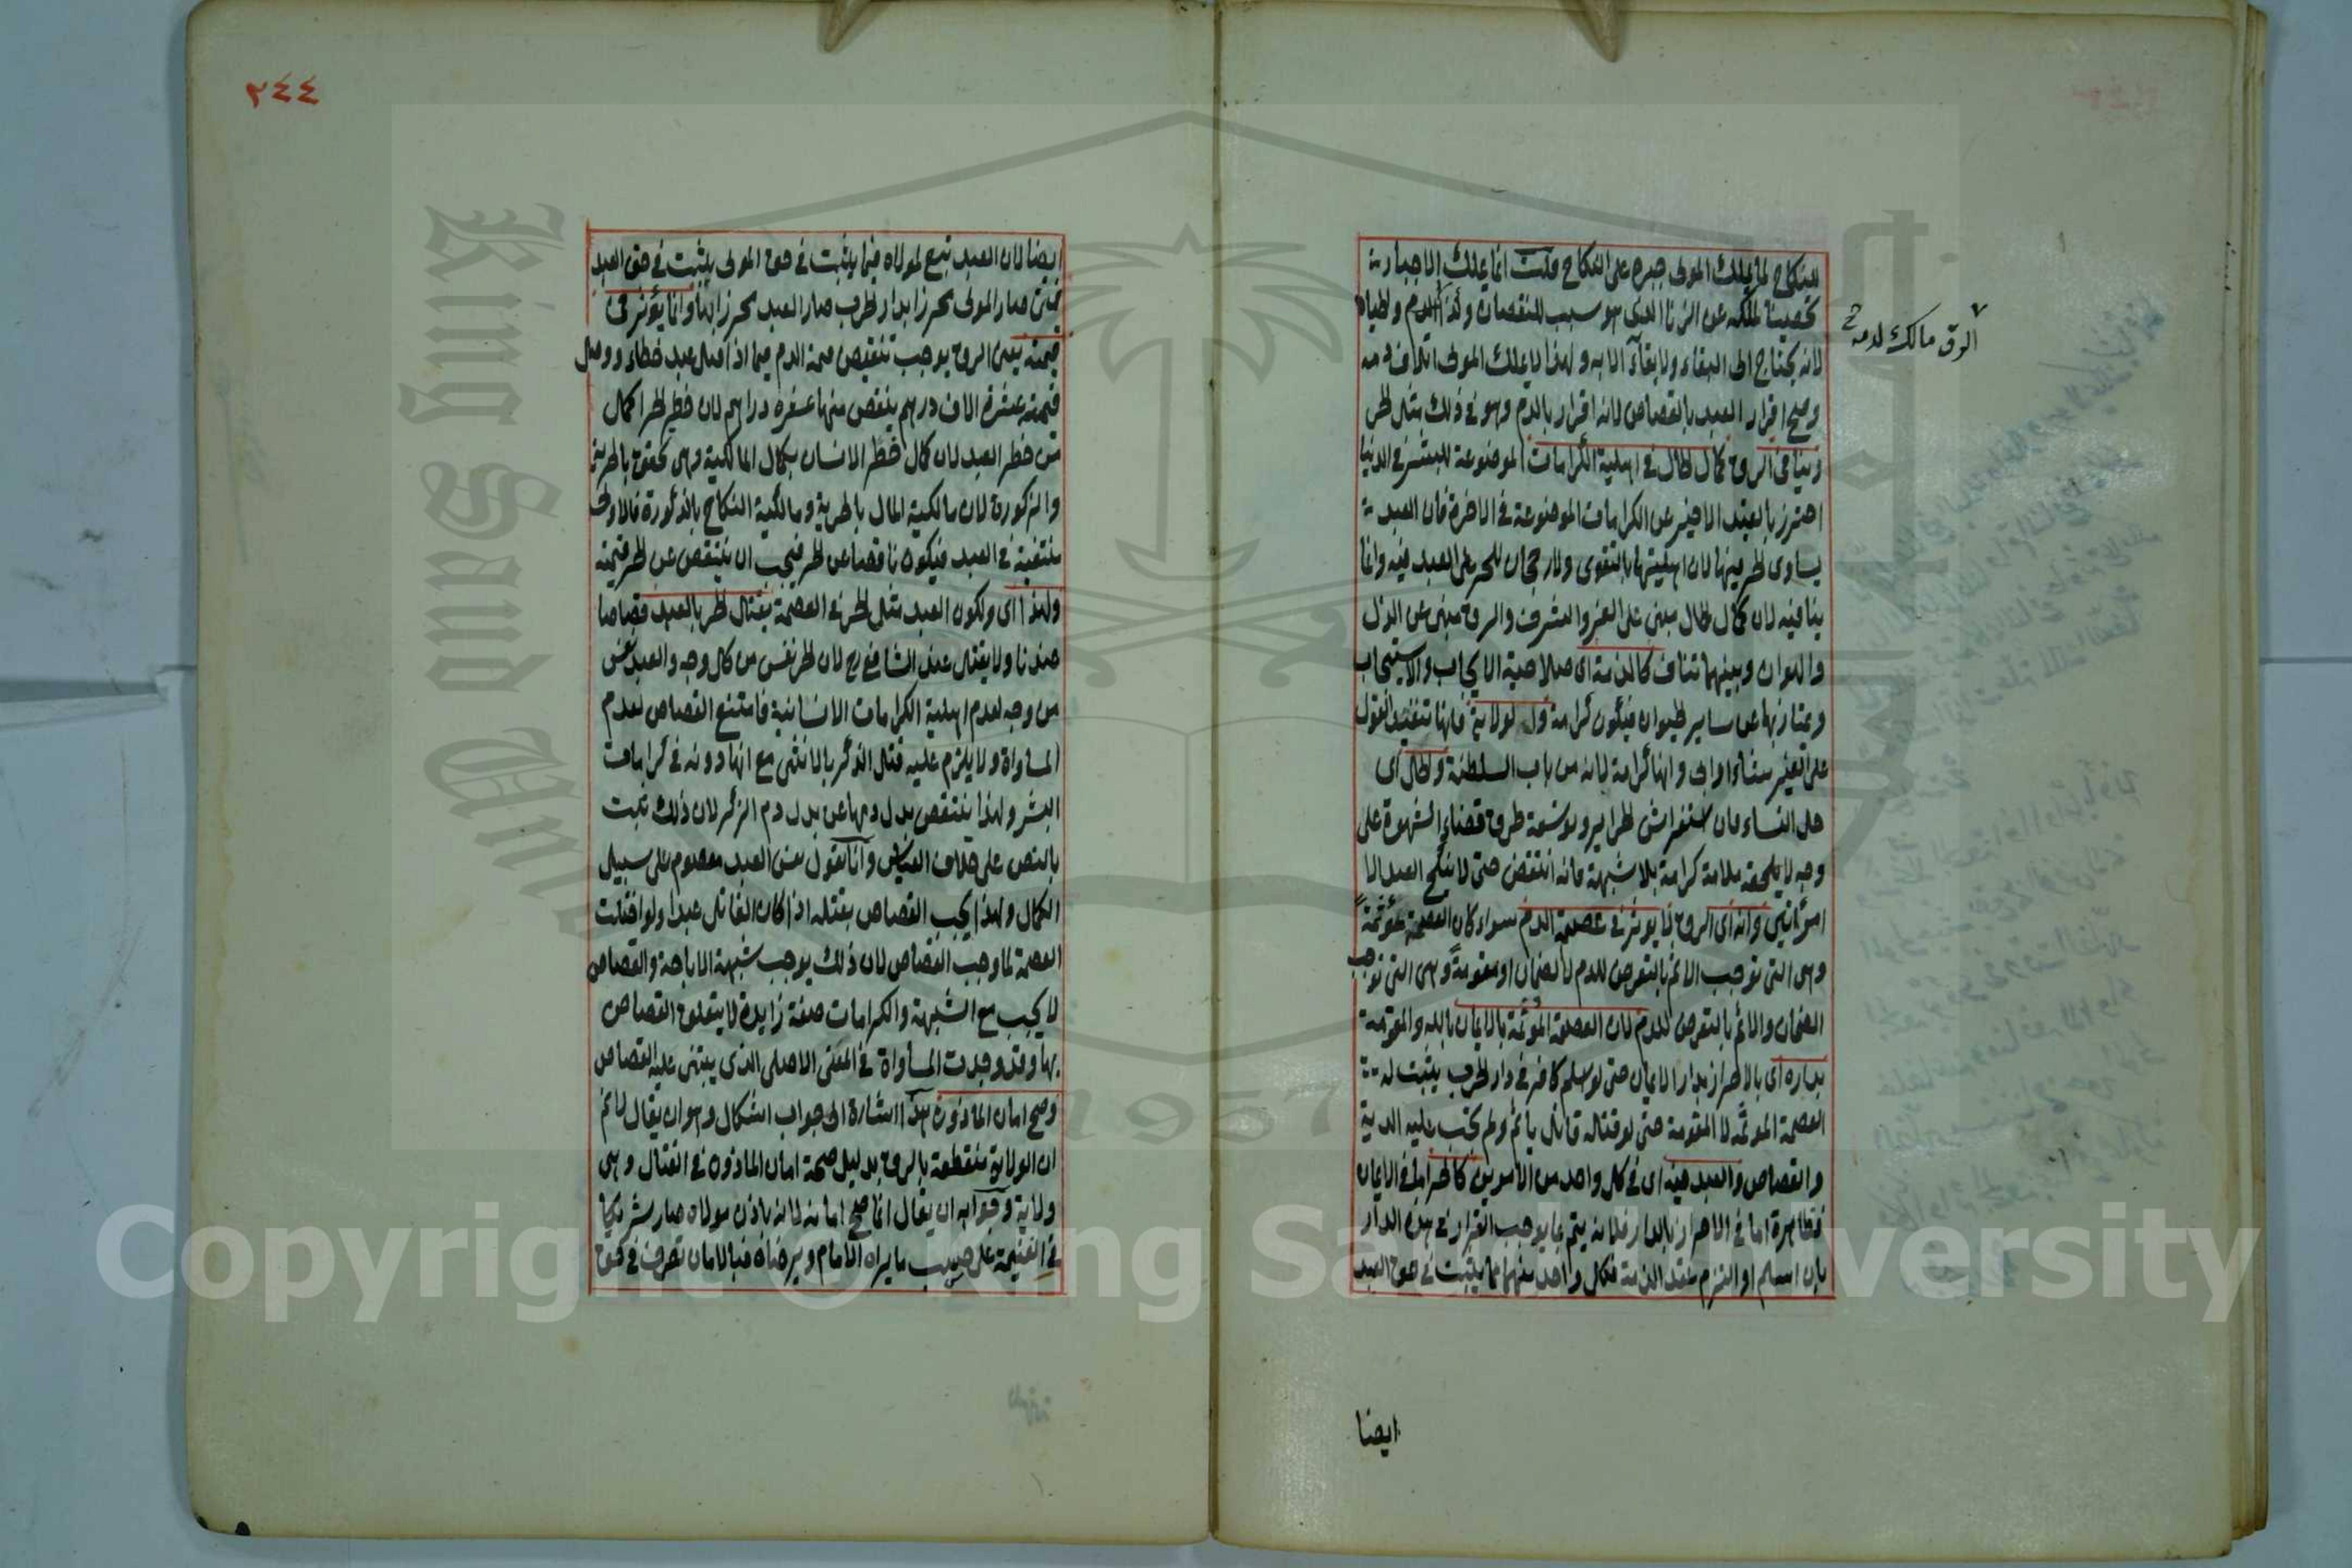 للنكاح لما يملك المولى جبره على النكاح قلت انما يملك الاجبار
تحصينا لملكه عن الزنا الذى هو سبب للنقصان والدم والحياة
الرق مالك لدمه
لانه يحتاج الى البقاء ولا بقاء الا به ولهذا لا يملك المولى اتلاف دمه
وصح اقرار العبد بالقصاص لانه اقرار بالدم وهو فى ذلك مثل الحر
وينافى الرق كمال الحال فى اهلية الكرامات الموضوعة للبشر فى الدنيا
احترز بالقيد الاخير عن الكرامات الموضوعة فى الاخرة فان العبد
يساوى الحر فيها لان اهليتها بالتقوى ولا رجحان للحر على العبد فيه وانما
ينافيه لان كمال الحال مبنى على العز والشرف والرق مبنى عن الذل
والهوان وبينهما تناف كالذمة اى صلاحية الايجاب والاستيجاب
ويمتاز بها عن ساير الحيوان فيكون كرامة والولاية فانها تنفيذ القول
على الغير شاء او ابى وانها كرامة لانه من باب السلطنة والحل اى
حل النساء فان استفراش الحراير وتوسعة طرق قضاء الشهوة على
وجه لا يلحقه ملامة كرامة بلا شبهة فانه انتقص حتى لا ينكح العبد الا
امرأتين وانه اى الرق لا يؤثر فى عصمة الدم سواء كان العصمة مؤثمة
وهى التى توجب الاثم بالتعرض للدم لا الضمان او مقومة وهى التى توجب
الضمان والاثم بالتعرض للدم لان العصمة المؤثمة بالايمان بالله والمقومة
بداره اى بالاحراز بدار الايمان حتى لو اسلم كافر فى دار الحرب يثبت له
العصمة المؤثمة لا المقومة حتى لو قتله قاتل يأثم ولم يجب عليه الدية
والقصاص والعبد فيه اى فى كل واحد من الامرين كالحر اما فى الايمان
فظاهرة اما فى الاحراز بالدار فلانه يتم بما يوجب القرار فى هذه الدار
بان اسلم او التزم عقد الذمة فكل واحد منهما مما يثبت فى حق العبد
ايضا
٢٤٤
ايضا لان العبد تبع لمولاه فيما يثبت فى حق المولى يثبت فى حق العبد
فمتى صار المولى محرزا بدار الحرب صار العبد محرزا ايضا وانما يؤثر فى
قيمته يعنى الرق يوجب تنقيص قيمة الدم فيما اذا قتل عبد خطاء ووصل
قيمته عشرة الاف درهم ينقص منها عشرة دراهم لان خطر الحر اكمل
من خطر العبد لان كمال خطر الانسان بكمال المالكية وهى تحقق بالحرية
والذكورة لان مالكية المال بالحرية ومالكية النكاح بالذكورة فالاولى
منتفية فى العبد فيكون ناقصا عن الحر فيجب ان ينتقص عن الحر قيمته
ولهذا اى ولكون العبد مثل الحر فى العصمة يقتل الحر بالعبد قصاصا
عندنا ولا يقتل عند الشافعى رح لان الحر نفس من كل وجه والعبد نفس
من وجه لعدم اهلية الكرامات الانسانية فامتنع القصاص لعدم
المساواة ولا يلزم عليه قتل الذكر بالانثى مع انها دونه فى كرامات
البشر ولهذا ينتقص بدل دمها عن بدل دم الذكر لان ذلك ثبت
بالنص على خلاف القياس وانا نقول نفس العبد معصوم على سبيل
الكمال ولهذا يجب القصاص بقتله اذا كان القاتل عبدا ولو اختلت
العصمة لما وجب القصاص لان ذلك يوجب شبهة الاباحة والقصاص
لا يجب مع الشبهة والكرامات صفة زايدة لا يتعلق القصاص
بها وقد وجدت المساواة فى المعنى الاصلى الذى يبتنى عليه القصاص
وصح امان الماذون هذا اشارة الى جواب اشكال وهو ان يقال لا نم
ان الولاية منقطعة بالرق بدليل صحة امان الماذون فى القتال وهى
ولاية وجوابه ان يقال انما صح امانه لانه باذن مولاه صار شريكا
فى الغنيمة على حسب ما يراه الامام ويرضاه فبالامان تصرف فى حق